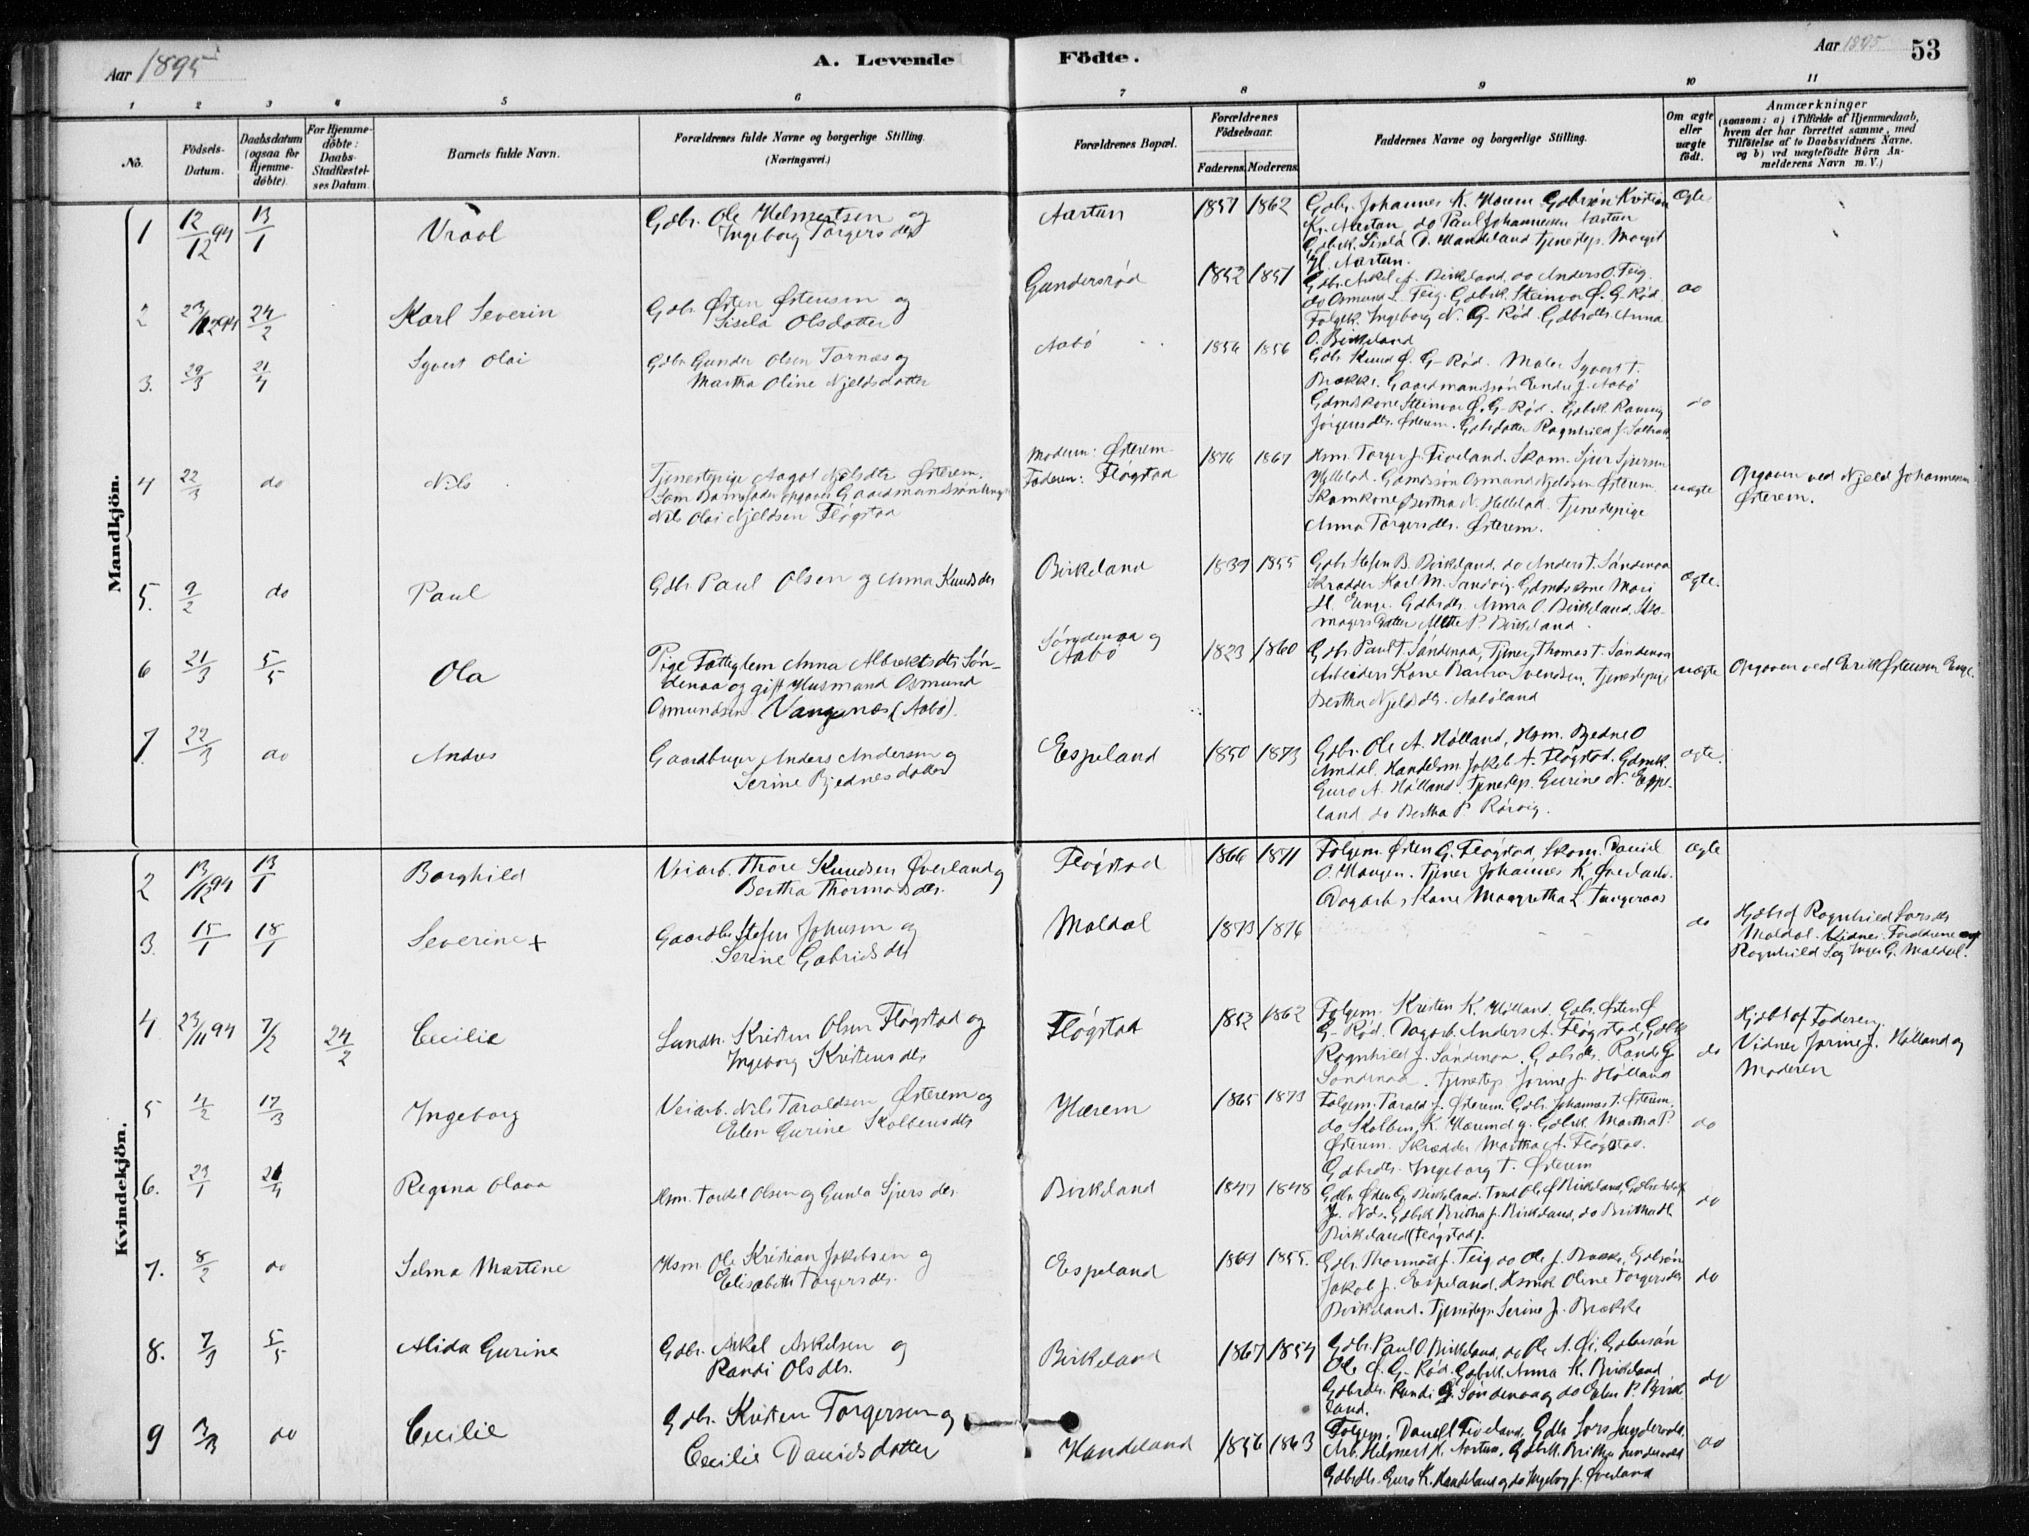 Aar 1895
A. Levende Födte.
Aar 1895 53
1 2 3 4 5 6 7 8 9 10 11
No.
Födsels-Datum.
Daabsdatum (ogsaa for Hjemmedøbte).
For Hjemmedøbte: Daabs-Stadfæstelses Datum
Barnets fulde Navn.
Forældrenes fulde Navne og borgerlige Stilling.
(Næringsvei.)
Forældrenes Bopæl.
Forældrenes Födselsaar.
Faderens. Moderens.
Faddernes Navne og borgerlige Stilling.
Om ægte eller uægte födt.
Anmærkninger
(saasom: a) i Tilfælde af Hjemmedaab, hvem der har forrettet samme, med Tilføielse af to Daabsvidners Navne. og b) ved uægtefödte Börn Anmelderens Navn m. V.)
Mandkjön.
1 12/12 94 13/1 Vraal
Gdbr. Ole Helmertsen og
Ingeborg Torgersdtr
Aartun 1857 1862
Gdbr. Johannes K. Hærem Gdbrsøn Kristian
Kr. Aartun do Paul Johannesen Aartun
Gdbrk. Sisela D. Handeland Tjenestep. Margit
H. Aartun.
Ægte
2 24/2 Karl Severin
Gdbr. Østen Østensen og
Sisela Olsdatter
Gundersrød 1852 1857
Gdbr. Askel A. Birkeland, do Anders O. Teig.
do Osmund L. Teig. Gdbrk. Steinvor Ø. G-Rød.
Folgek. Ingeborg N. G-Rød. Gdbrdtr. Anna
O. Birkeland
do
3. 29/3 21/4 Syvert Olai
Gdbr Gunder Olsen Tornæs og
Martha Oline Njeldsdatter
Aabø 1856 1856
Gdbr. Knud Ø. G-Rød. Maler Syvert T.
Brække. Gaardmandssøn Endre J. Aabø
Gdmdskone Steinvor Ø. G-Rød. Gdbrk. Ranveig
Jörgensdtr. Østerem. Gdbrdatter Ragnhild J.
do
4 22/3 do Nils
Tjenestepige Aagot Njelsdtr Østerem.
Som Barnefader opgaves Gaardmandssøn Ungk.
Nils Olai Njeldsen Fløgstad
Moderen: Østerem
Faderen: Fløgstad
1876 1867
Hsm. Torger J. Tiveland. Skom. Sjur Sjursen
Hellelad. Gdmdssøn Osmund Njeldsen Østerem.
Skomkone Bertha N. Hellelad. Tjenestepige
Anna Torgersdtr. Østerem.
uægte
Opgaven ved Njeld Johannessen
Østerem.
5. 9/2 do Paul
Gdbr Paul Olsen og Anna Knudsdtr
Birkeland 1839 1855
Gdbr. Stefen B. Birkeland, do Anders T. Søndenaa
Skrædder Karl M. Sandvig. Gdmdskone Mari
H. Enge. Gdbrdtr. Anna O. Birkeland, Sko-
magers Datter Mette P. Birkeland.
ægte.
6 21/3 5/5 Ola
Pige Fattiglem Anna Albrektsdtr Søn-
denaa og gift Husmand Osmund
Osmundsen Vangenæs (Aabø).
Søndenaa og
Aabø
1823 1860
Gdbr. Paul T. Søndenaa, Tjener Thomas T. Søndenaa
Arbeiders Kone Barbra Svendsen, Tjenestepige
Bertha Njeldsdtr. Aaboland
uægte
Opgaven ved Erik Østensen Enge.
7. 22/3 do Anders
Gaardbruger Anders Andersen og
Serine Bjednesdatter
Espeland 1850 1873
Gdbr. Ole A. Hölland, Hsm. Bjedne O
Amdal. Handelsm. Jakob A. Fløgstad. Gdmk.
Guro A. Hölland. Tjenestep. Gurine N. Espe-
land do Bertha P. Rörvig.
ægte.
Kvindekjön.
2 13/12 94 13/1 Borghild
Veiarb. Thore Knudsen Øverland og
Bertha Thormodsdtr.
Fløgstad 1866 1871
Folgem. Østen G. Fløgstad, Skom. Daniel
O. Haugen. Tjener Johannes K. Øverland.
Dagarb.s Kone Margretha L. Tungeraas
ægte
3. 15/1 18/1 Severine +
Gaardbr. Stefen Johnsen og
Serine Gabrielsdtr
Maldal 1873 1876
do
Hjdbt af Ragnhild Larsdtr
Maldal. Vidner. Forældrene og
Ragnhild L og Inger G. Maldal.
4. 23/11 94 7/2 24/2 Cecilie
Landh. Kristen Olsen Fløgstad og
Ingeborg Kristensdtr
Fløgstad 1852 1862
Folgem. Kristen K. Hölland, Gdbr. Østen Ø
G-Rød. Dagarb. Anders A. Fløgstad, Gdbrk
Ragnhild J. Søndenaa, Gdbrdtr. Randi G.
Søndenaa. Tjenestep Jorine J. Hölland
do
Hjdbt af Faderen.
Vidner Jorine J. Hölland og
Moderen
5 11/2 17/3 Ingeborg
Veiarb. Nils Taraldsen Østerem og
Elen Gurine Skolbensdtr
Hærem 1865 1873
Folgem. Tarald J. Østerem. Gdbr. Johannes T. Østerem,
do Skolben K. Hærem og Gdbrk. Martha P.
Østerem. Skrædder Martha A. Fløgstad.
Gdbrdtr. Ingeborg T. Østerem
do
6. 23/1 21/4 Regina Olava
Hsm. Torkel Olsen og Gunla Sjursdtr
Birkeland 1847 1848
Gdbr. Østen G. Birkeland.
Birkeland (Fløgstad).
do
7. 8/2 do Selma Martine
Hsm. Ole Kristian Jakobsen og
Elisabeth Torgersdtr.
Espeland 1861 1855.
Gdbr. Thormod J. Teig do Ole J. Brække, Gdbrsøn
Jakob J. Espeland. Hsmk Oline Torgersdtr
Birkeland. Tjenestep. Serine J. Brække
do
8. 7/3 5/5 Alida Gurine
Gdbr. Askel Askelsen og
Randi Olsdtr.
Birkeland 1867 1854
Gdbr. Paul O Birkeland, do Ole A. Øi, Gdbrsøn
Ole Ø. G-Rød. Gdbrk. Anna K. Birkeland
Gdbrdtr. Randi G. Søndenaa og do Elen P. Birke-
land.
do
9 3/3 do Cecilie
Gdbr. Kristen Torgersen og
Cecilie Danielsdatter
Handeland 1856 1863
Folgem. Daniel Tiveland, Gdbr Lars Sundevold.
Arb. Helmert K. Aartun, Gdbrk. Brithe Sundevold
Gdbrdtr. Guro K. Handeland og do Ingeborg J. Øverland
do